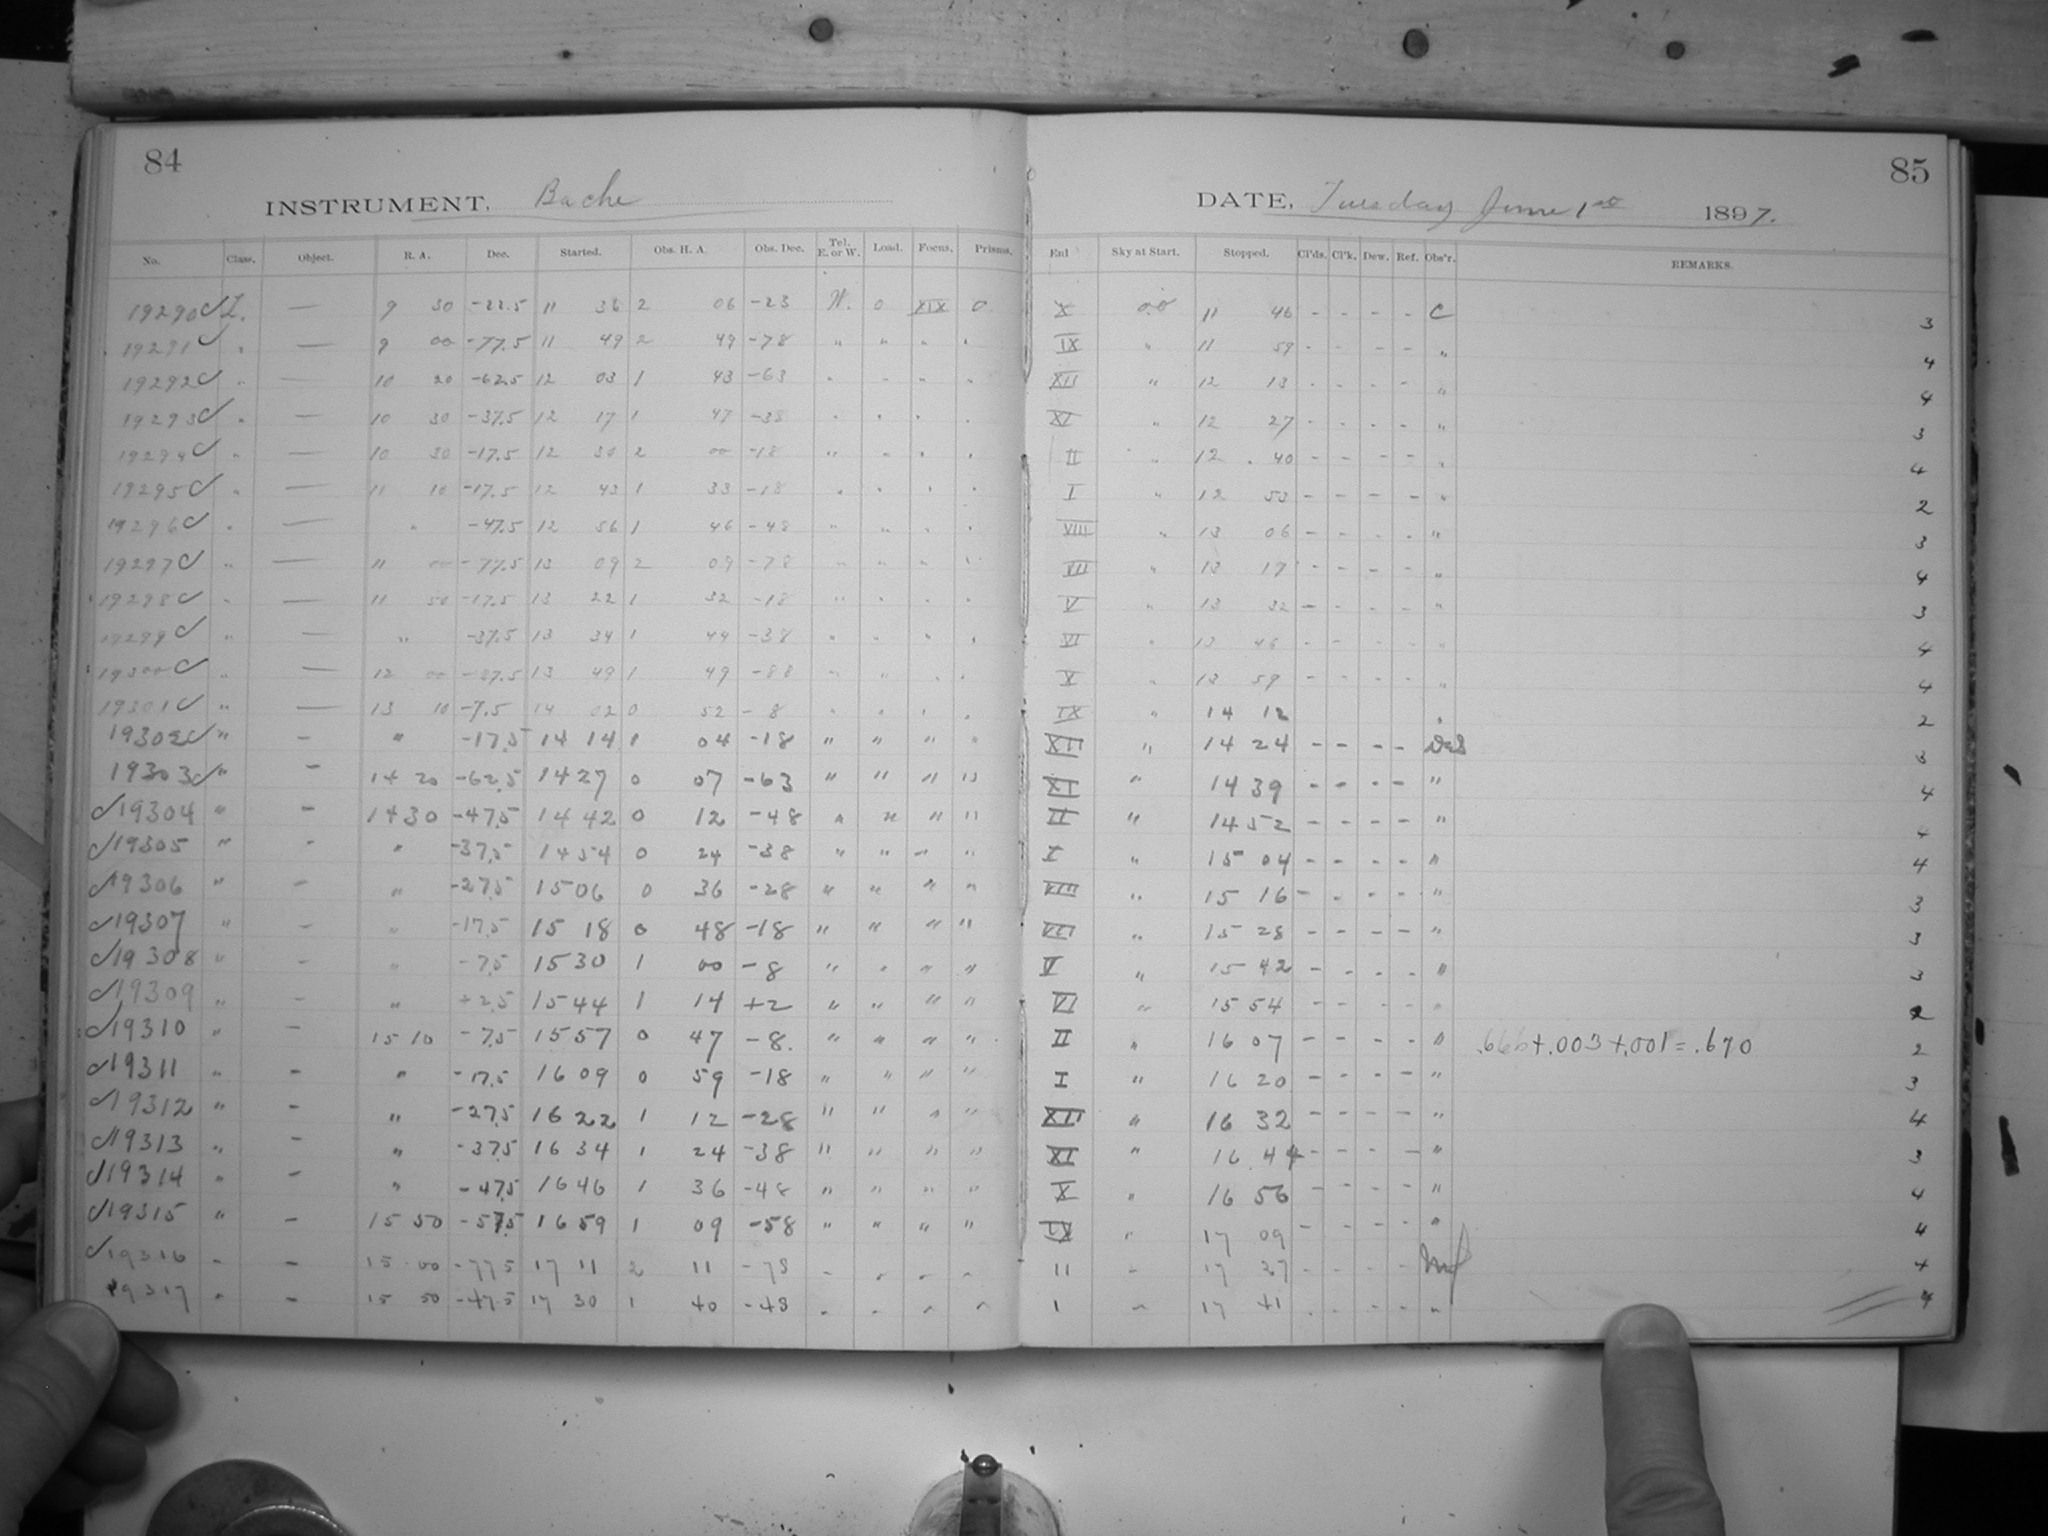 84
85
INSTRUMENT, Bache
DATE, Tuesday June 1st 1897.
No. Class. Object. R. A. Dec. Started. Obs. H. A. Obs. Dec. Tel. E. or W. Load. Focus. Prisms. Enl Sky at Start. Stopped. Cl'ds. Cl'k. Dew. Ref. Obs'r. REMARKS.
19290 L. — 9 30 -22.5 11 36 2 06 -23 W. 0 XIX 0 X 00 11 46 - - - - C 3
19291 " — 9 00 -77.5 11 49 2 49 -78 " " " " IX " 11 59 - - - " 4
19292 " — 10 20 -62.5 12 03 1 43 -63 " " " " XII " 12 13 - - - - " 4
19293 " — 10 30 -37.5 12 17 1 47 -38 " " " " XI " 12 27 - - - - " 3
19294 " — 10 30 -17.5 12 30 2 00 -18 " " " " II " 12 40 - - - - " 4
19295 " — 11 10 -17.5 12 43 1 33 -18 " " " " I " 12 53 - - - - " 2
19296 " — " -47.5 12 56 1 46 -48 " " " " VIII " 13 06 - - - - " 3
19297 " — 11 00 -77.5 13 09 2 09 -78 " " " " VII " 13 17 - - - - " 4
19298 " — 11 50 -17.5 13 22 1 32 -18 " " " " V " 13 32 - - - - " 3
19299 " — " -37.5 13 34 1 44 -38 " " " " VI " 13 46 - - - - " 4
19300 " — 12 00 -87.5 13 49 1 49 -88 " " " " X " 13 59 - - - - " 4
19301 " — 13 10 -7.5 14 02 0 52 -8 " " " " IX " 14 12 " 2
19302 " — " -17.5 14 14 1 04 -18 " " " " XII " 14 24 - - - - 3
19303 " — 14 20 -62.5 14 27 0 07 -63 " " " " XI " 14 39 - - - - " 4
19304 " — 14 30 -47.5 14 42 0 12 -48 " " " " II " 14 52 - - - - " 4
19305 " - " -37.5 14 54 0 24 -38 " " " " I " 15 04 - - - - " 4
19306 " — " -27.5 15 06 0 36 -28 " " " " VIII " 15 16 - - - - " 3
19307 " - " -17.5 15 18 0 48 -18 " " " " VII " 15 28 - - - - " 3
19308 " - " -7.5 15 30 1 00 -8 " " " " V " 15 42 - - - - " 3
19309 " - " +2.5 15 44 1 14 +2 " " " " VI " 15 54 - - - - " 2
19310 " — 15 10 -7.5 15 57 0 47 -8. " " " " II " 16 07 - - - - " .666+.003+.001=.670 2
19311 " - " -17.5 16 09 0 59 -18 " " " " I " 16 20 - - - - " 3
19312 " - " -27.5 16 22 1 12 -28 " " " " XII " 16 32 - - - - " 4
19313 " - " -37.5 16 34 1 24 -38 " " " " XI " 16 44 - - - - " 3
19314 " - " -47.5 16 46 1 36 -48 " " " " X " 16 56 - - - - " 4
19315 " - 15 50 -57.5 16 59 1 09 -58 " " " " IX " 17 09 - - - - " 4
19316 " - 15 00 -77.5 17 11 2 11 -78 " " " " II " 17 27 - - - - 4
19317 " - 15 50 -47.5 17 30 1 40 -48 " " " " I " 17 41 - - - - " 4